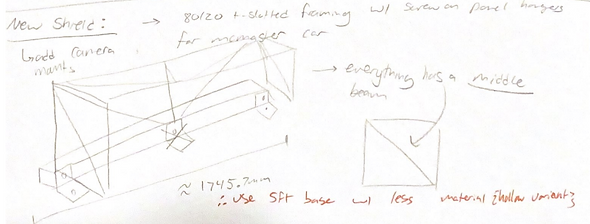 New Shield: → 80/20 t-slotted framing w/ screw on panel hangers
for mcmaster car
↳ add camera
mounts
→ everything has a middle
beam
≈ 1745.7mm
∴ use 5ft base w/ less material {hollow variant}